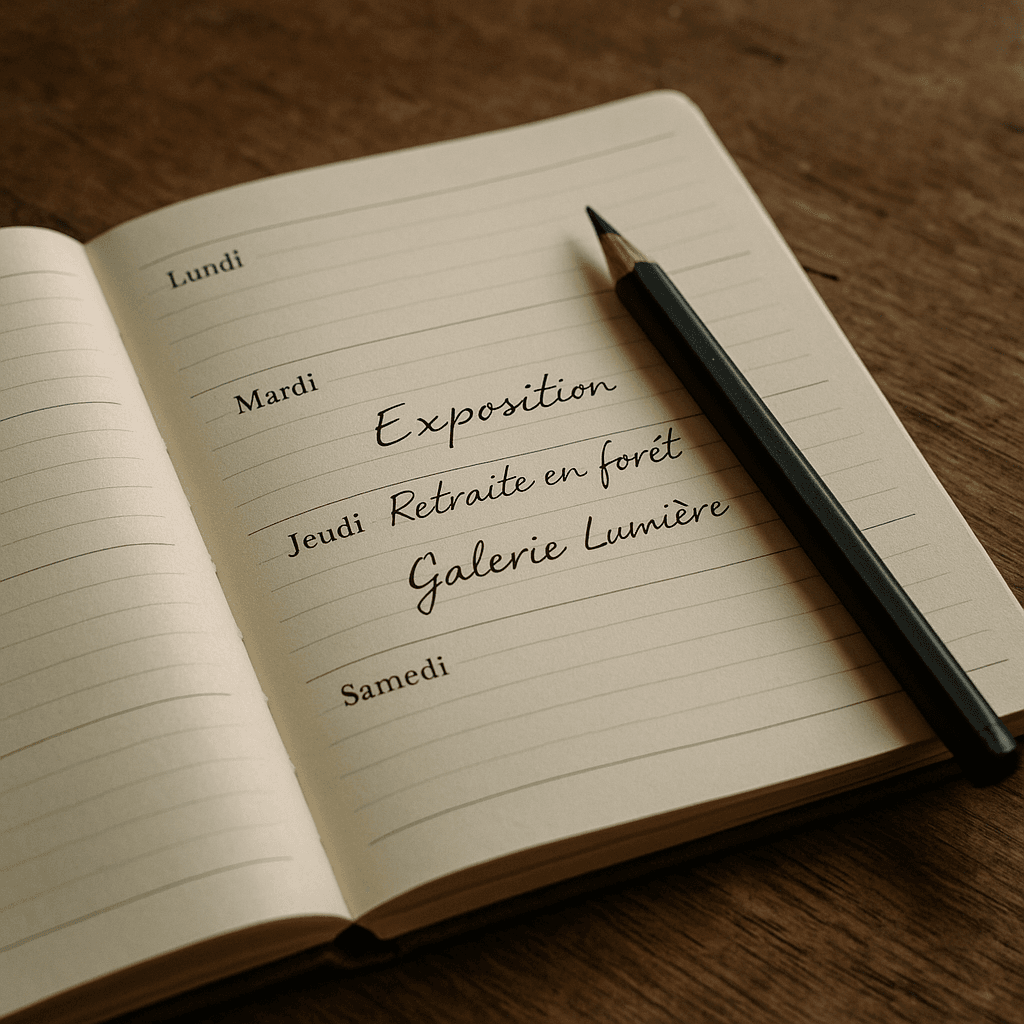 Lundi
Mardi
Exposition
Jeudi Retraite en forét
Galerie Lumière
Samedi